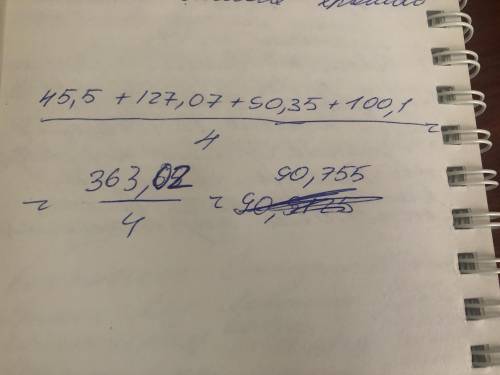 45,5 + 127,07 + 90,35 + 100,1 =
4
= 363,02 = 90,755
4